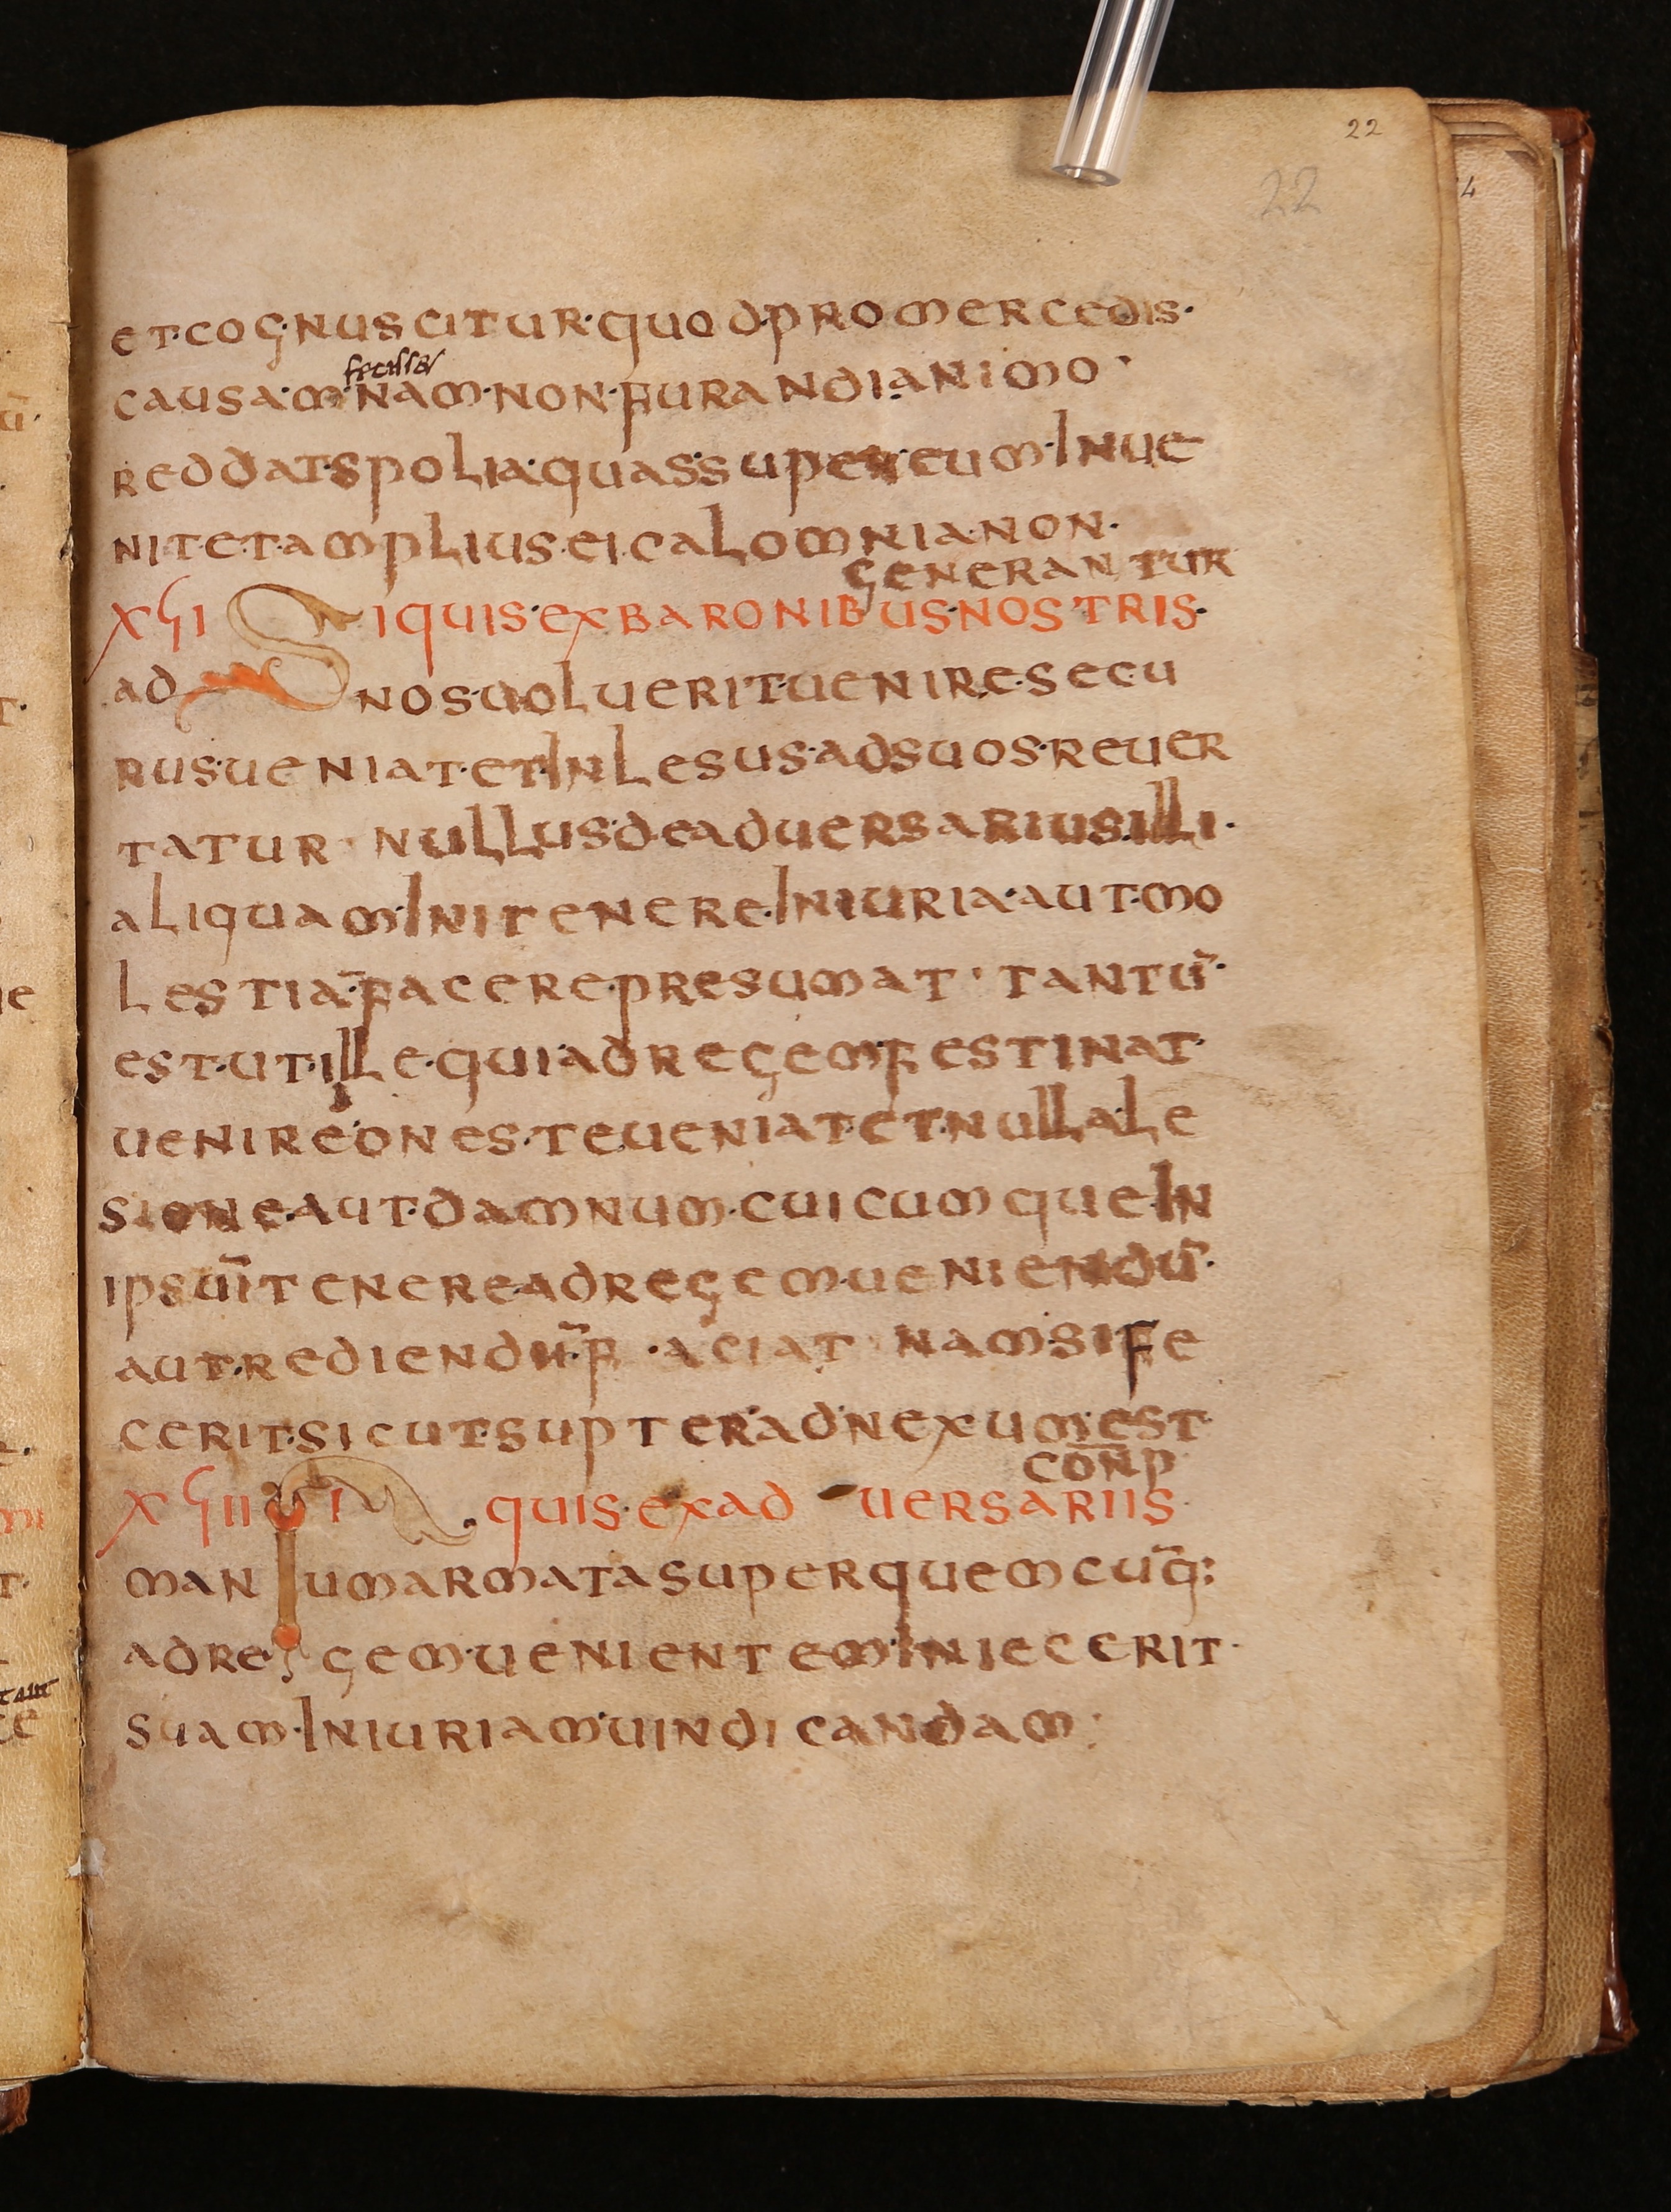 22
22
4
et·cognuscitur·quod·pro mercedis·
fecisset
causa·m·nam·non·furandi animo·
reddat·spolia·quas·super·eum·inue
nit·et·amplius·ei·calomnia·non·
generantur
XGI Si quis·ex baronibus·nostris·
ad nos·uoluerit·uenire·secu
rus·ueniat·et inlesus·ad suos·reuer
tatur nullus·de aduersarius·illi·
aliquam·in itenere·iniuria·aut·mo
lestiā·facere·presumat · tantū·
est·ut·ille·qui ad regem·festinat
uenire·oneste ueniat·et·nulla le
sione·aut·damnum·cuicumque·in
ipsū itenere·ad regem·ueniendū·
aut·rediendū·f·aciat nam·si fe
cerit·sicut·supter·adnexum·est
cōnp
XGII Si quis·ex ad uersariis
man um armata super quemcūq:
ad re gem·uenientem·iniecerit·
suam·iniuriam·uindicandam: